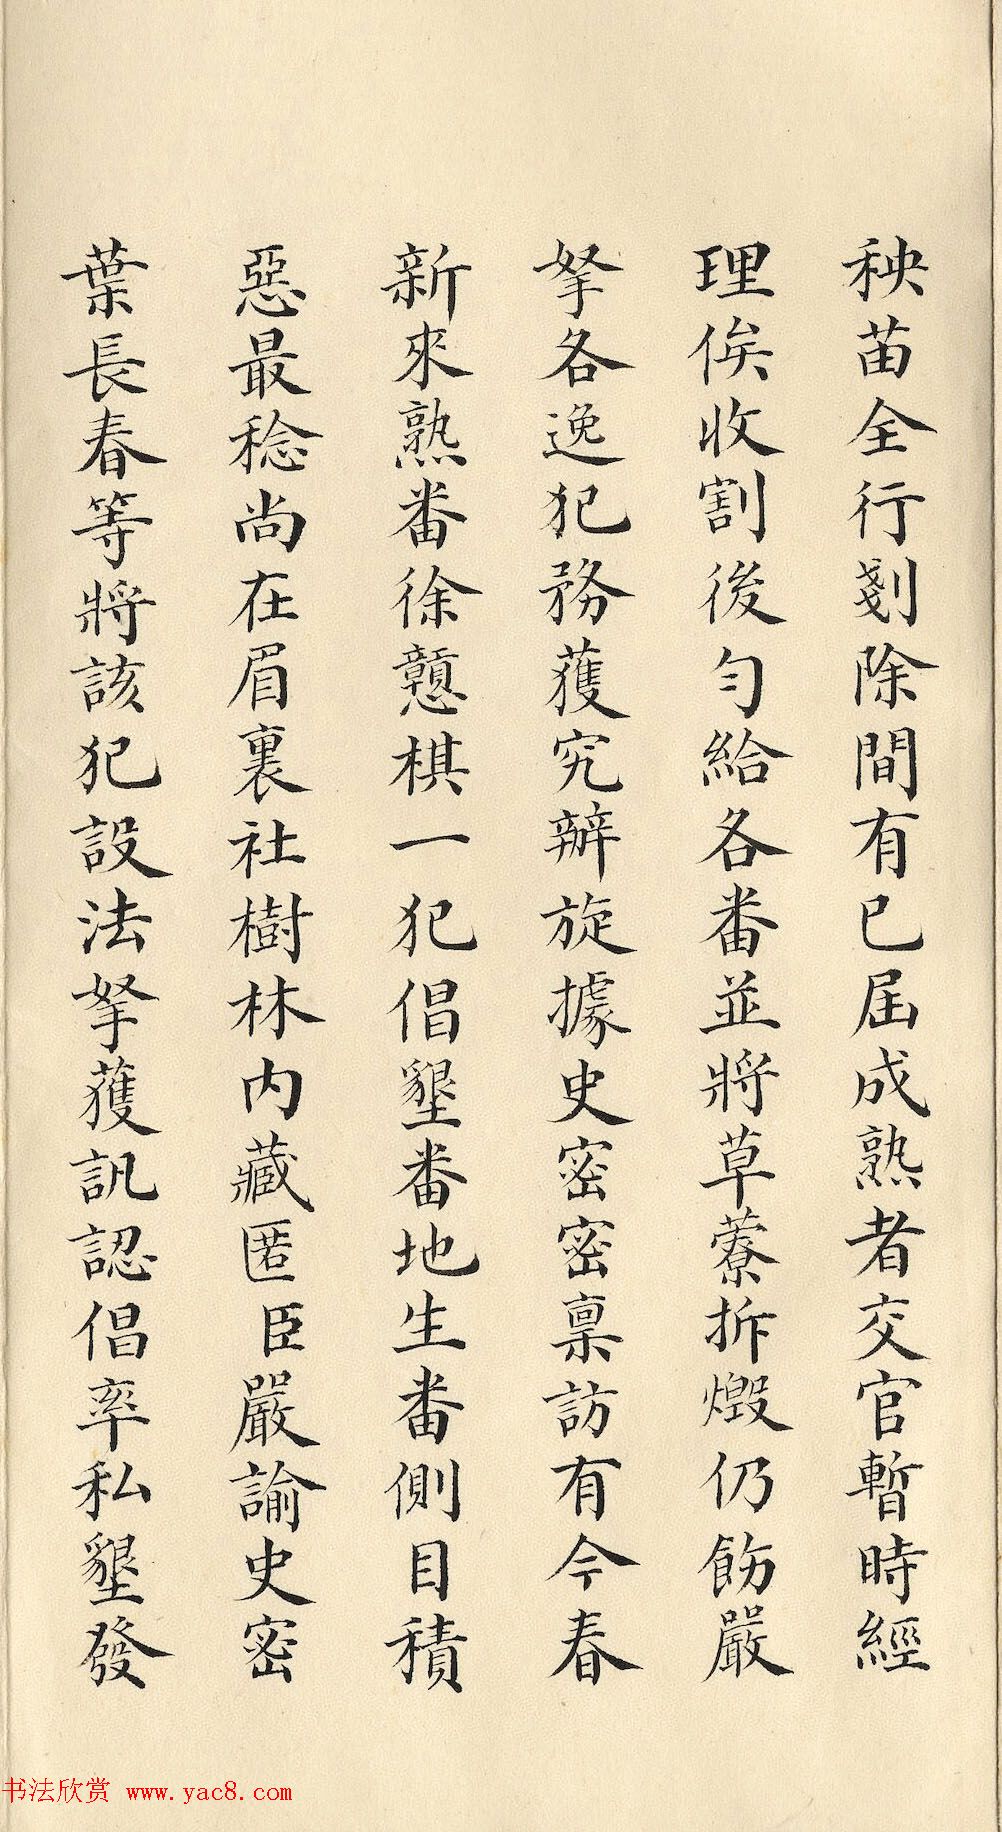 秧苗全行剗除間有已屆成熟者交官暫時經
理俟收割後勻給各番並將草藔拆燬仍飭嚴
拏各逸犯務獲究辦旋據史密密稟訪有今春
新來熟番徐戇棋一犯倡墾番地生番側目積
惡最稔尚在眉裏社樹林內藏匿臣嚴諭史密
葉長春等將該犯設法拏獲訊認倡率私墾發
书法欣赏 www.yac8.com